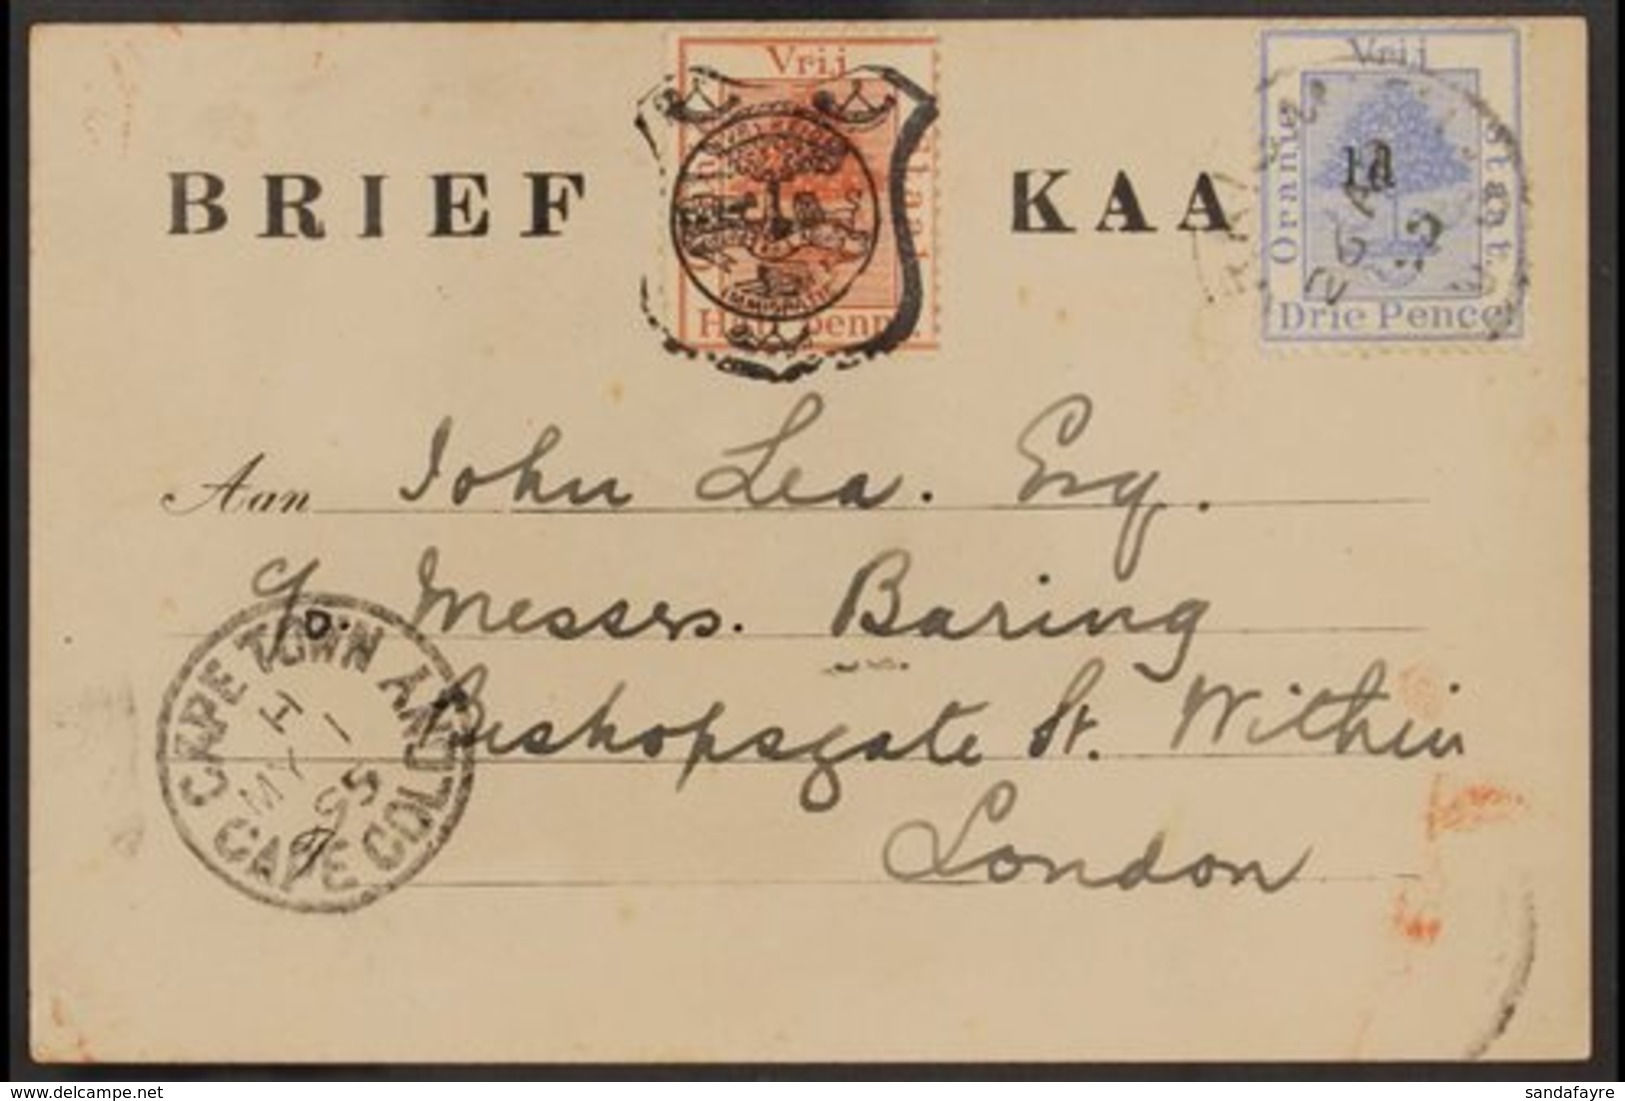 Vrij
Half penny.
BRIEF KAA
Vrij
Oranje
Staat.
1d
Drie Pence.
Aan John Lea. Esq.
c/o Messrs. Baring
Bishopsgate St. Within
London
D.
CAPE TOWN
H
MY 1
95
CAPE COLONY
IMMIGRATIE
sandafayre